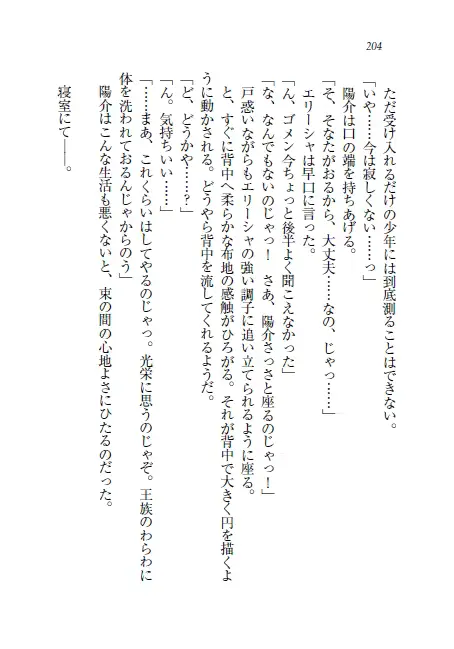 204
ただ受け入れるだけの少年には到底測ることはできない。
「いや……今は寂しくない……っ」
陽介は口の端を持ちあげる。
「そ、そなたがおるから、大丈夫……なの、じゃっ……」
エリーシャは早口に言った。
「ん、ゴメン今ちょっと後半よく聞こえなかった」
「な、なんでもないのじゃっ！　さあ、陽介さっさと座るのじゃっ！」
戸惑いながらもエリーシャの強い調子に追い立てられるように座る。
と、すぐに背中へ柔らかな布地の感触がひろがる。それが背中で大きく円を描くよ
うに動かされる。どうやら背中を流してくれるようだ。
「ど、どうかや……？」
「ん。気持ちいい……」
「……まあ、これくらいはしてやるのじゃっ。光栄に思うのじゃぞ。王族のわらわに
体を洗われておるんじゃからのう」
陽介はこんな生活も悪くないと、束の間の心地よさにひたるのだった。
寝室にて――。